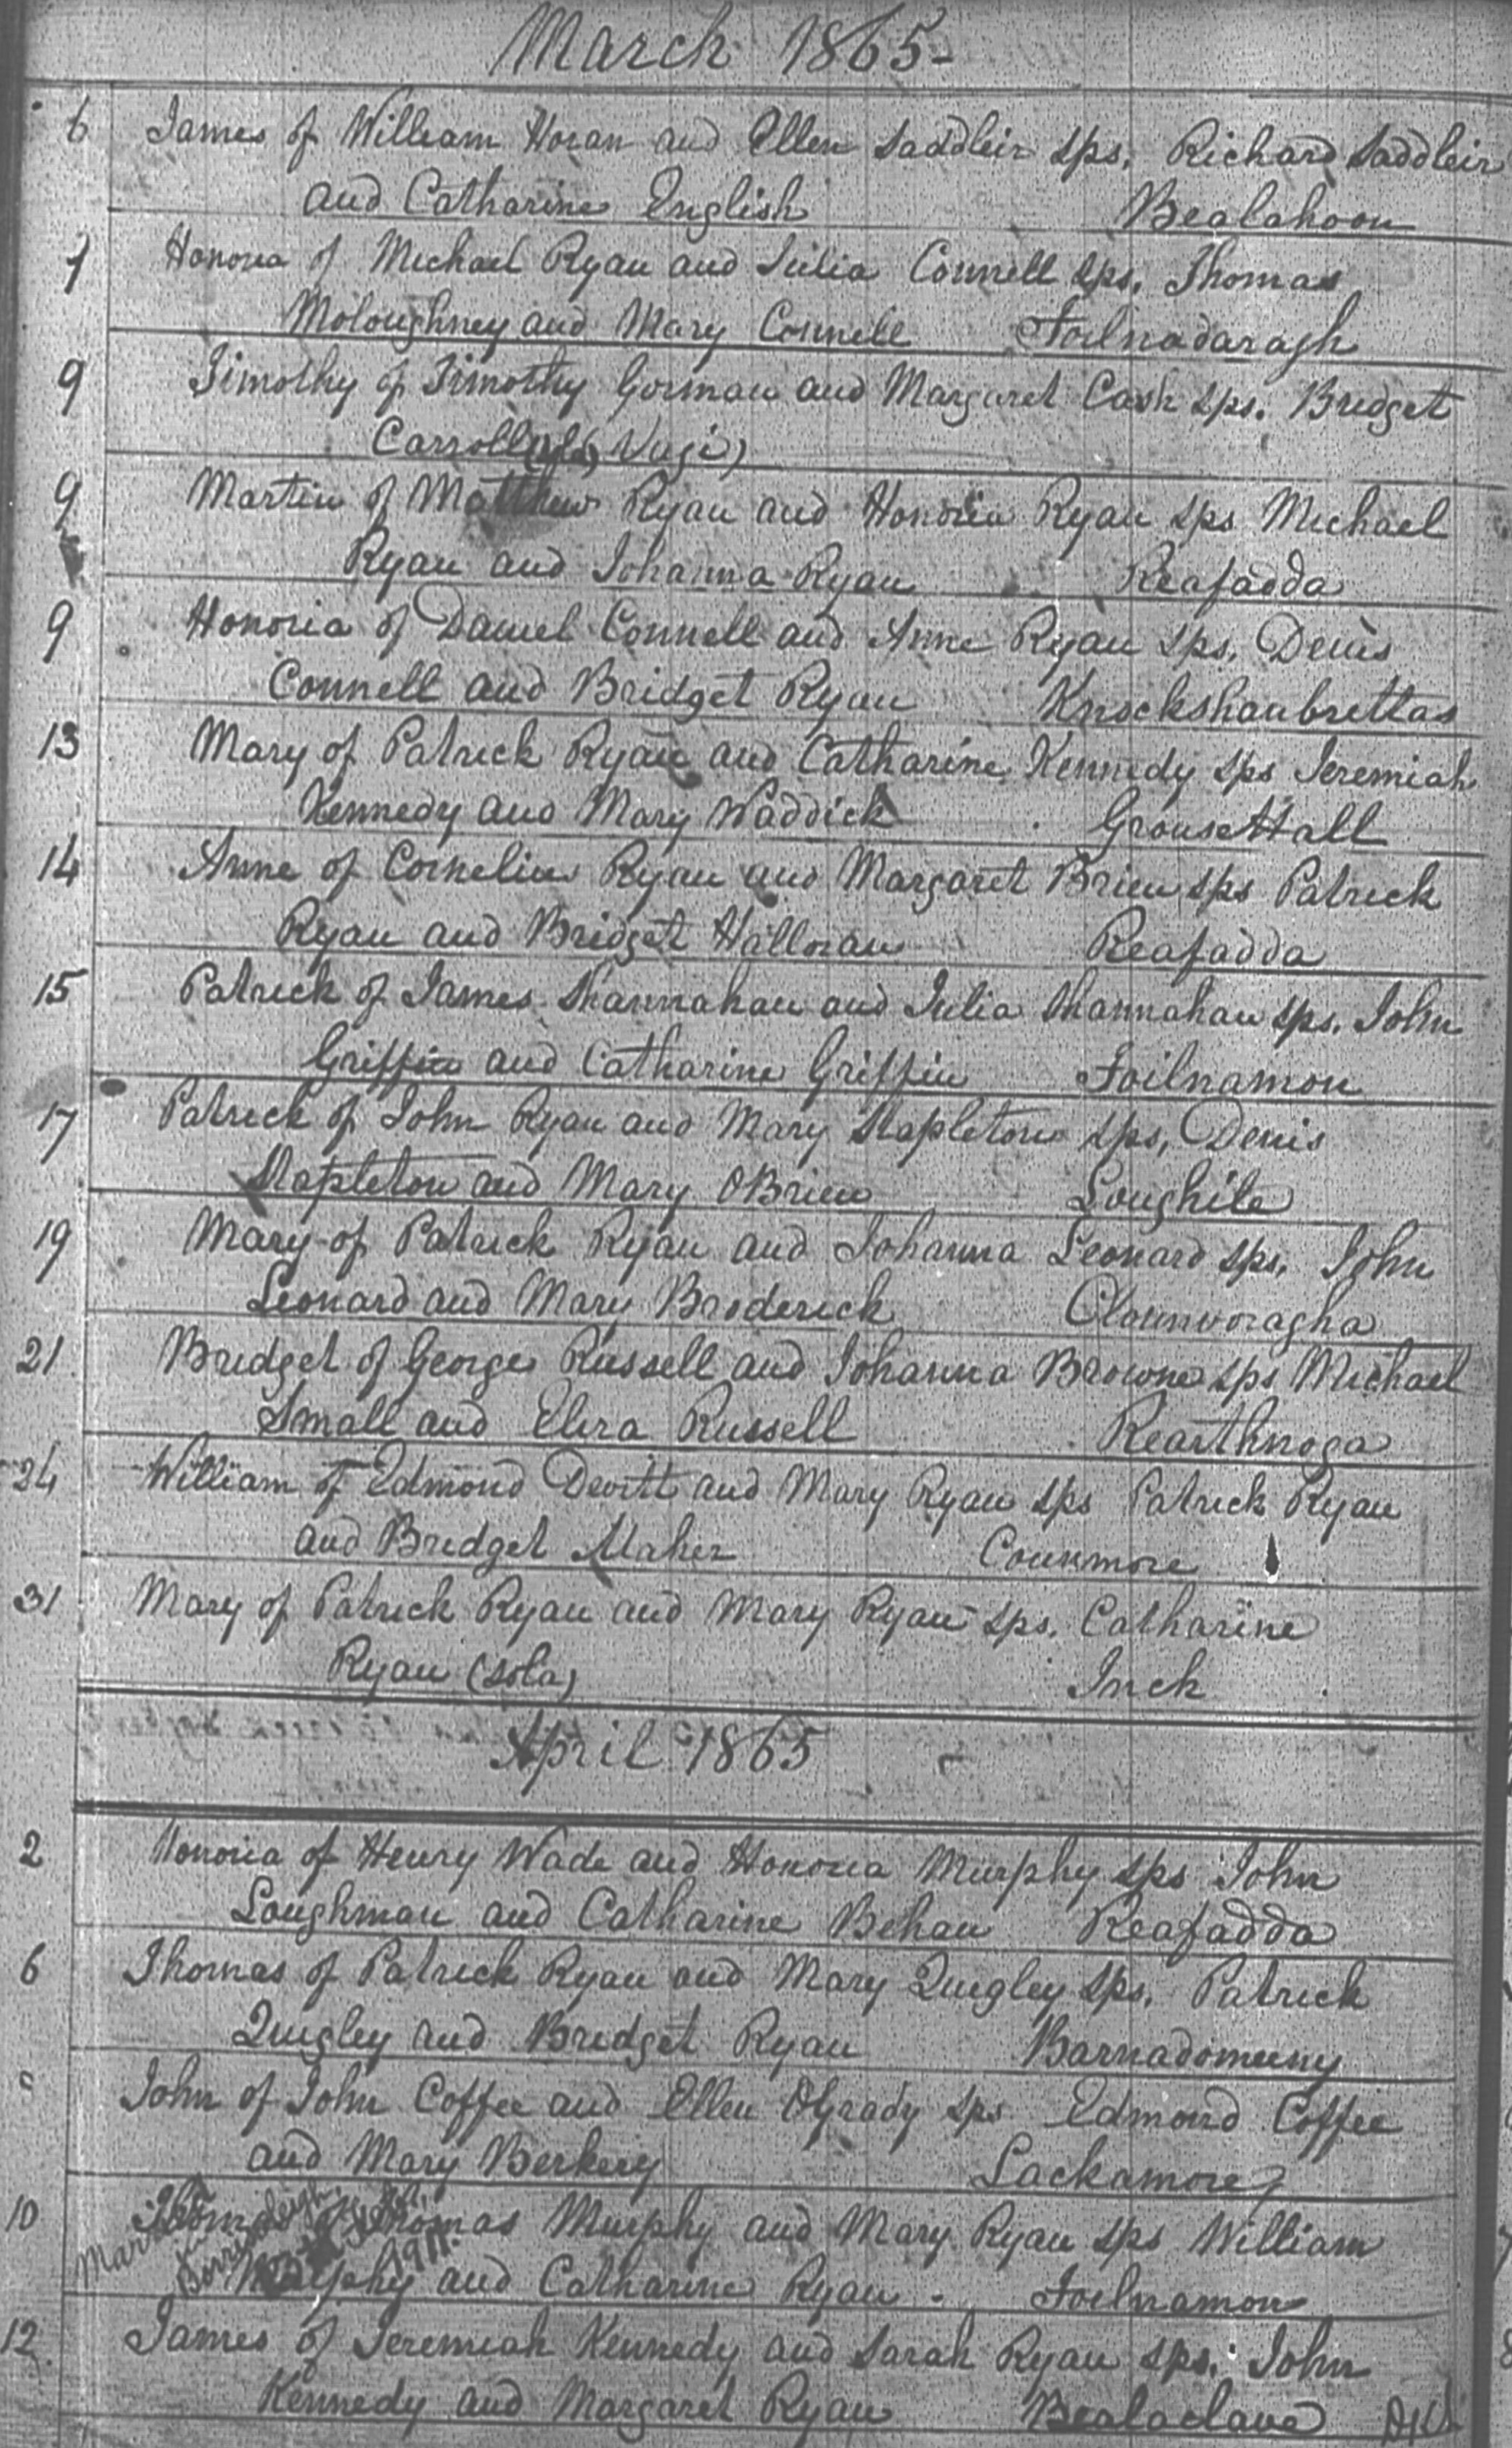 March 1865-
6 James of William Horan and Ellen Saddleir sps. Richard Saddleir
and Catharine English Bealahoon
7 Honoria of Michael Ryan and Julia Connell sps. Thomas
Moloughney and Mary Connell Foilnadaragh
9 Timothy of Timothy Gorman and Margaret Cash sps. Bridget
Carroll (Vagi)
9 Martin of Matthew Ryan and Honoria Ryan sps Michael
Ryan and Johanna Ryan Reafadda
9 Honoria of Daniel Connell and Anne Ryan sps. Denis
Connell and Bridget Ryan Knockshanbrettas
13 Mary of Patrick Ryan and Catharine Kennedy sps Jeremiah
Kennedy and Mary Waddick Grouse Hall
14 Anne of Cornelius Ryan and Margaret Brien sps Patrick
Ryan and Bridget Halloran Reafadda
15 Patrick of James Shannahan and Julia Shannahan sps. John
Griffin and Catharine Griffin Foilnamon
17 Patrick of John Ryan and Mary Stapleton sps, Denis
Stapleton and Mary OBrien Loughile
19 Mary of Patrick Ryan and Johanna Leonard sps. John
Leonard and Mary Broderick Clounvoragha
21 Bridget of George Russell and Johanna Browne sps Michael
Small and Eliza Russell Rearthnoga
24 William of Edmond Devitt and Mary Ryan sps Patrick Ryan
and Bridget Maher Counmore
31 Mary of Patrick Ryan and Mary Ryan sps. Catharine
Ryan (sola) Inch
April 1865
2 Honoria of Henry Wade and Honoria Murphy sps John
Loughman and Catharine Behan Reafadda
6 Thomas of Patrick Ryan and Mary Quigley sps. Patrick
Quigley and Bridget Ryan Barnadomeeny
John of John Coffee and Ellen OGrady sps Edmond Coffee
and Mary Berkery Lackamore
10 Thomas of Thomas Murphy and Mary Ryan sps William
Murphy and Catharine Ryan. Foilnamon
1911.
12 James of Jeremiah Kennedy and Sarah Ryan sps. John
Kennedy and Margaret Ryan Bealaclave